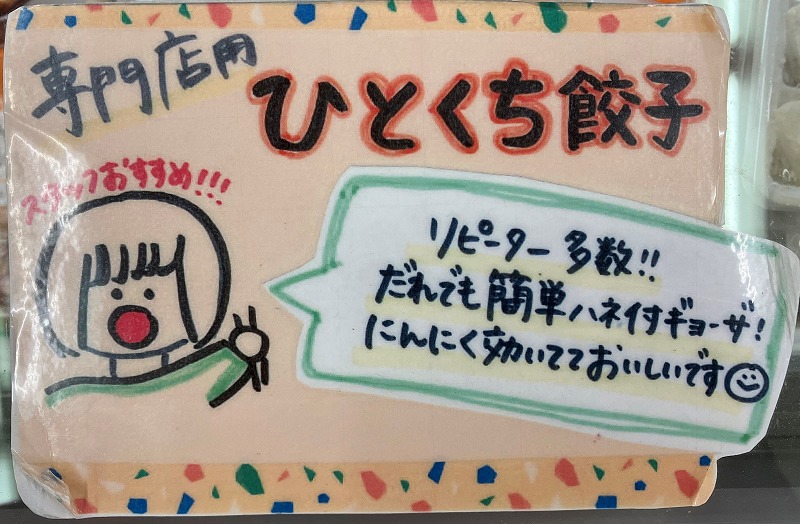 専門店用
ひとくち餃子
スタッフおすすめ!!!
リピーター多数!!
だれでも簡単ハネ付ギョーザ!
にんにく効いてておいしいです